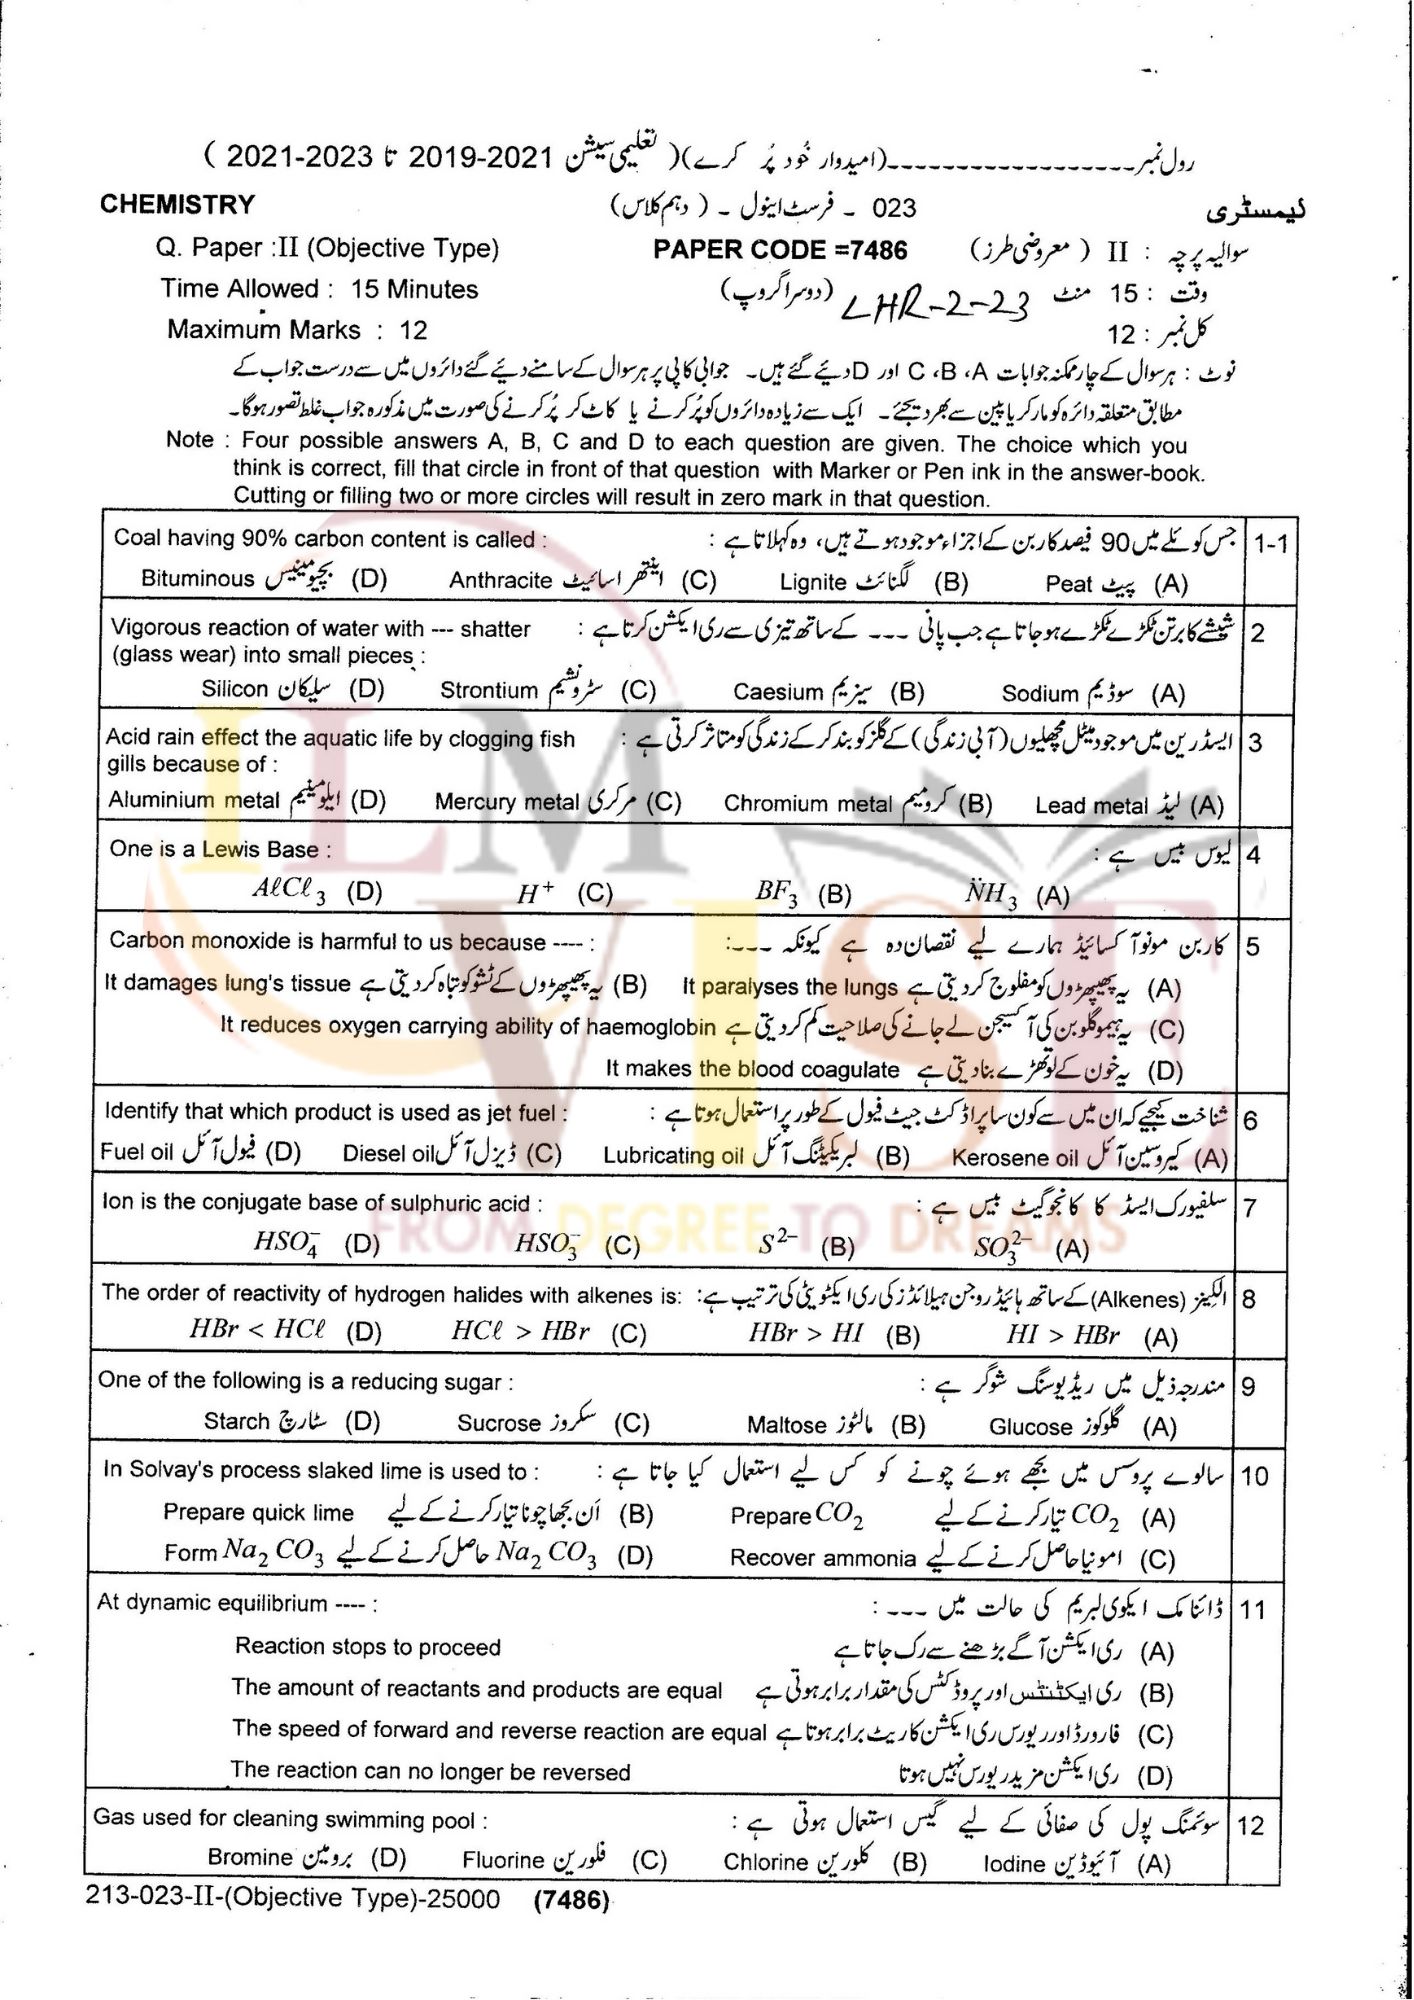 رول نمبر-------------------(امیدوار خُود پُر کرے)( تعلیمی سیشن 2021-2019 تا 2023-2021 )
CHEMISTRY 023 - فرسٹ اینول - ( دہم کلاس) کیمسٹری
Q. Paper :II (Objective Type) PAPER CODE =7486 سوالیہ پرچہ : II ( معروضی طرز)
Time Allowed : 15 Minutes LHR-2-23 (دوسرا گروپ) وقت : 15 منٹ
Maximum Marks : 12 کل نمبر : 12
نوٹ : ہر سوال کے چار ممکنہ جوابات A، B، C اور D دیئے گئے ہیں۔ جوابی کاپی پر ہر سوال کے سامنے دیئے گئے دائروں میں سے درست جواب کے
مطابق متعلقہ دائرہ کو مارکر یا پین سے بھر دیجئے۔ ایک سے زیادہ دائروں کو پُر کرنے یا کاٹ کر پُر کرنے کی صورت میں مذکورہ جواب غلط تصور ہوگا۔
Note : Four possible answers A, B, C and D to each question are given. The choice which you
think is correct, fill that circle in front of that question with Marker or Pen ink in the answer-book.
Cutting or filling two or more circles will result in zero mark in that question.
Coal having 90% carbon content is called : جس کوئلے میں 90 فیصد کاربن کے اجزاء موجود ہوتے ہیں، وہ کہلاتا ہے : 1-1
Bituminous بچیومینیس (D) Anthracite اینتھراسائیٹ (C) Lignite لگنائٹ (B) Peat پیٹ (A)
Vigorous reaction of water with --- shatter شیشے کا برتن ٹکڑے ٹکڑے ہو جاتا ہے جب پانی --- کے ساتھ تیزی سے ری ایکشن کرتا ہے : 2
(glass wear) into small pieces :
Silicon سلیکان (D) Strontium سٹرونشیم (C) Caesium سیزیم (B) Sodium سوڈیم (A)
Acid rain effect the aquatic life by clogging fish ایسڈ رین میں موجود میٹل مچھلیوں (آبی زندگی) کے گلز کو بند کر کے زندگی کو متاثر کرتی ہے : 3
gills because of :
Aluminium metal ایلومینیم (D) Mercury metal مرکری (C) Chromium metal کرومیم (B) Lead metal لیڈ (A)
One is a Lewis Base : لیوس بیس ہے : 4
AℓCℓ₃ (D) H⁺ (C) BF₃ (B) N̈H₃ (A)
Carbon monoxide is harmful to us because ---- : کاربن مونو آکسائیڈ ہمارے لیے نقصان دہ ہے کیونکہ ---: 5
It damages lung's tissue یہ پھیپھڑوں کے ٹشو کو تباہ کر دیتی ہے (B) It paralyses the lungs یہ پھیپھڑوں کو مفلوج کر دیتی ہے (A)
It reduces oxygen carrying ability of haemoglobin یہ ہیموگلوبن کی آکسیجن لے جانے کی صلاحیت کم کر دیتی ہے (C)
It makes the blood coagulate یہ خون کے لوتھڑے بنا دیتی ہے (D)
Identify that which product is used as jet fuel : شناخت کیجیے کہ ان میں سے کون سا پراڈکٹ جیٹ فیول کے طور پر استعمال ہوتا ہے : 6
Fuel oil فیول آئل (D) Diesel oil ڈیزل آئل (C) Lubricating oil لبریکیٹنگ آئل (B) Kerosene oil کیروسین آئل (A)
Ion is the conjugate base of sulphuric acid : سلفیورک ایسڈ کا کانجوگیٹ بیس ہے : 7
HSO₄⁻ (D) HSO₃⁻ (C) S²⁻ (B) SO₃²⁻ (A)
The order of reactivity of hydrogen halides with alkenes is: الکینز (Alkenes) کے ساتھ ہائیڈروجن ہیلائڈز کی ری ایکٹویٹی کی ترتیب ہے: 8
HBr < HCℓ (D) HCℓ > HBr (C) HBr > HI (B) HI > HBr (A)
One of the following is a reducing sugar : مندرجہ ذیل میں ریڈیوسنگ شوگر ہے : 9
Starch سٹارچ (D) Sucrose سکروز (C) Maltose مالٹوز (B) Glucose گلوکوز (A)
In Solvay's process slaked lime is used to : سالوے پروسس میں بجھے ہوئے چونے کو کس لیے استعمال کیا جاتا ہے : 10
Prepare quick lime اَن بجھا چونا تیار کرنے کے لیے (B) Prepare CO₂ CO₂ تیار کرنے کے لیے (A)
Form Na₂CO₃ Na₂CO₃ حاصل کرنے کے لیے (D) Recover ammonia امونیا حاصل کرنے کے لیے (C)
At dynamic equilibrium ---- : ڈائنامک ایکوی لبریم کی حالت میں ---: 11
Reaction stops to proceed ری ایکشن آگے بڑھنے سے رک جاتا ہے (A)
The amount of reactants and products are equal ری ایکٹنٹس اور پروڈکٹس کی مقدار برابر ہوتی ہے (B)
The speed of forward and reverse reaction are equal فارورڈ اور ریورس ری ایکشن کا ریٹ برابر ہوتا ہے (C)
The reaction can no longer be reversed ری ایکشن مزید ریورس نہیں ہوتا (D)
Gas used for cleaning swimming pool : سوئمنگ پول کی صفائی کے لیے گیس استعمال ہوتی ہے : 12
Bromine برومین (D) Fluorine فلورین (C) Chlorine کلورین (B) Iodine آئیوڈین (A)
213-023-II-(Objective Type)-25000 (7486)
ILM
VISE
FROM DEGREE TO DREAMS